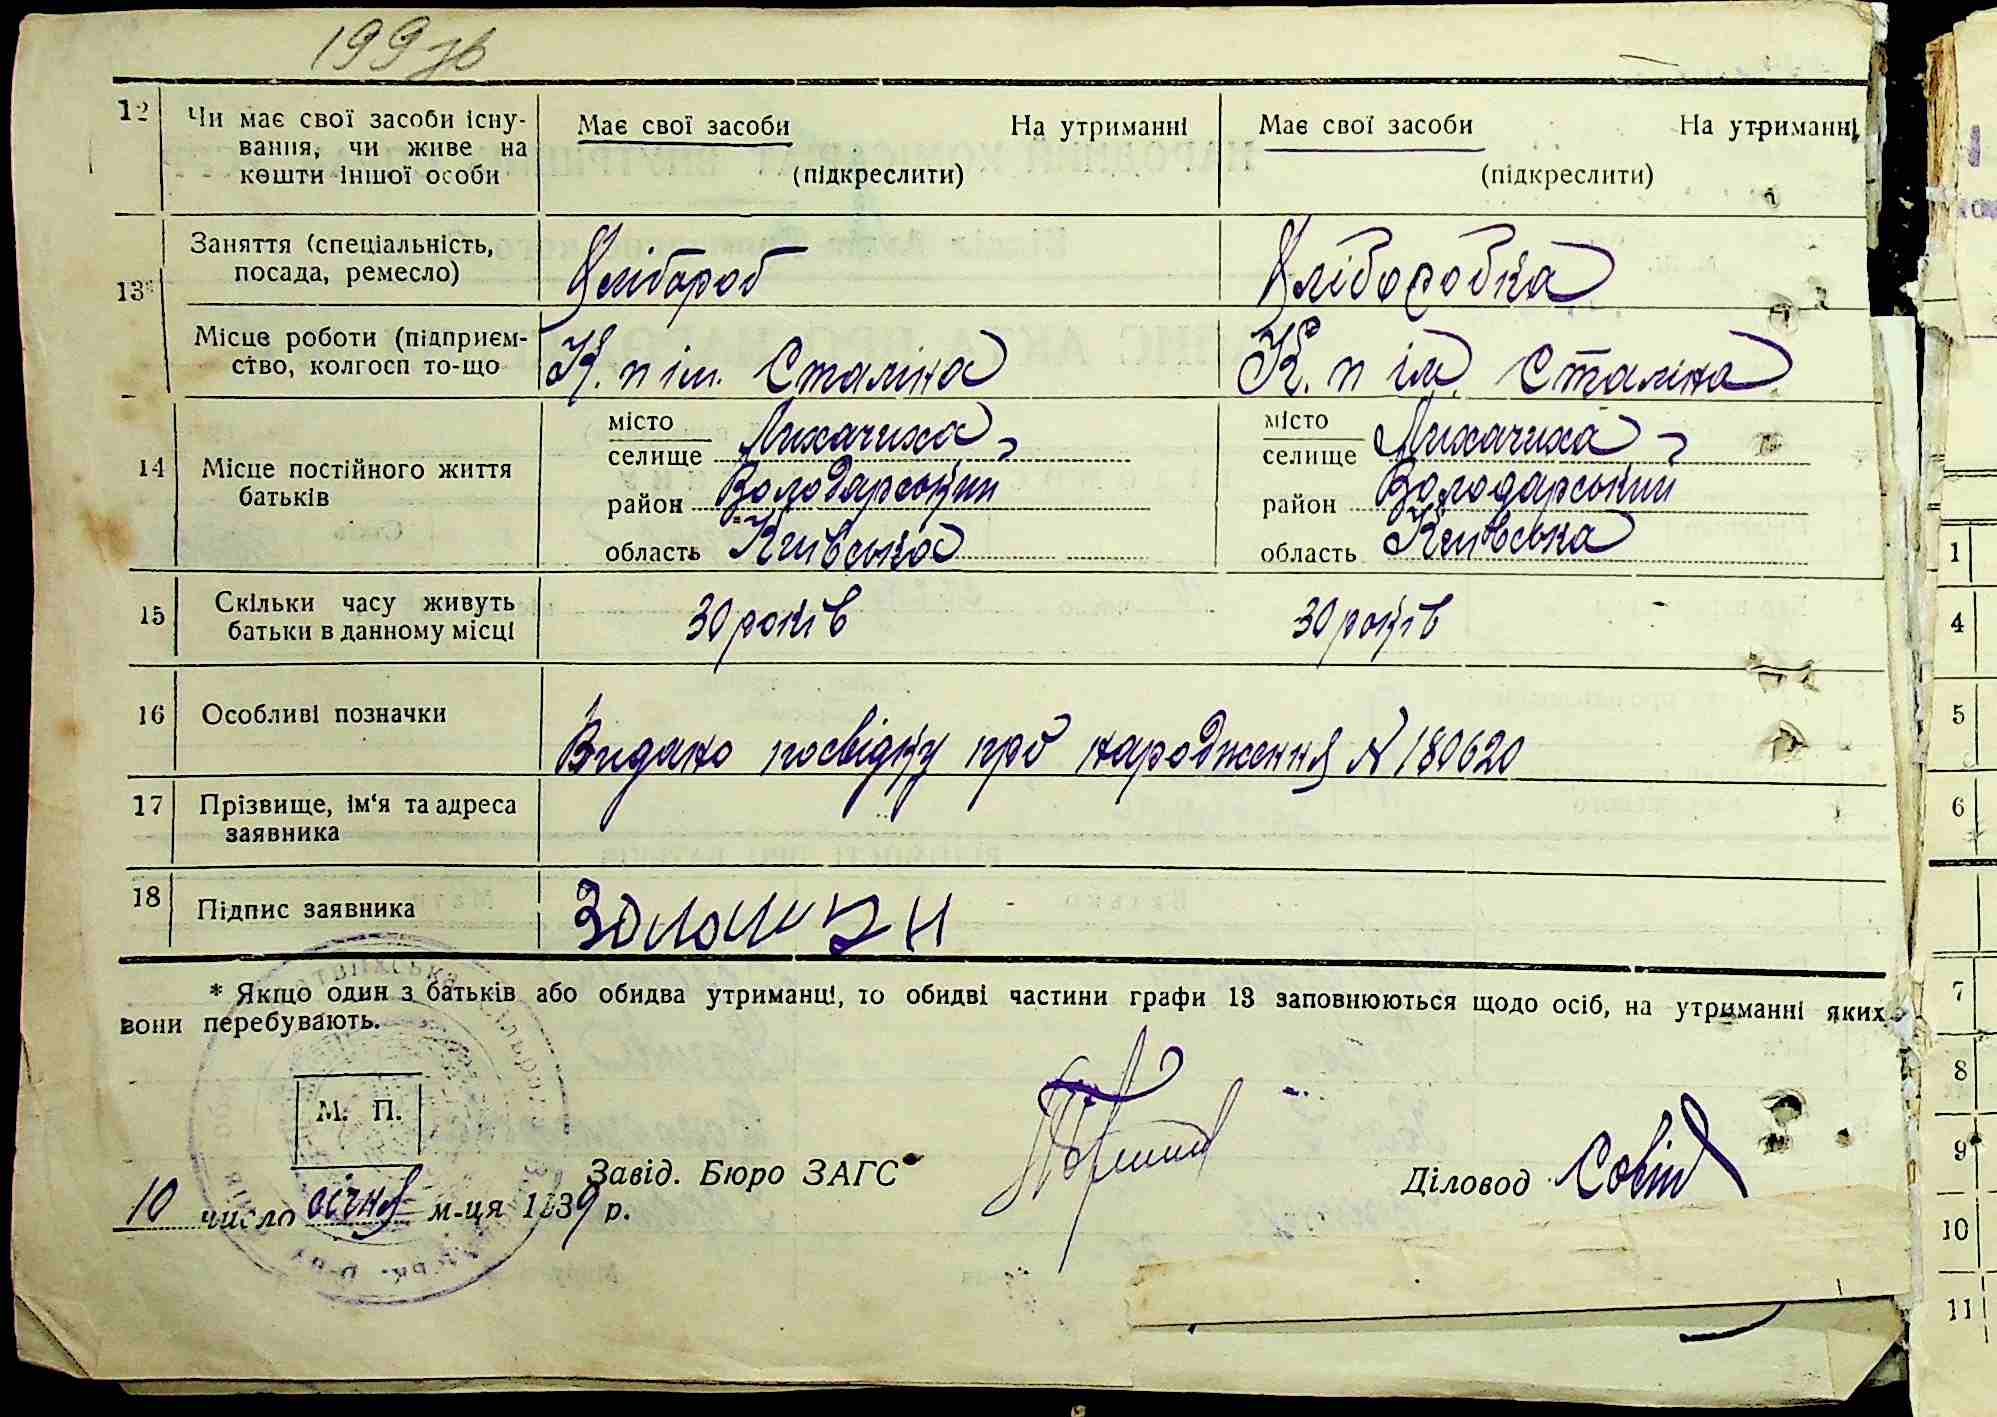 199 зв
12 Чи має свої засоби існу- Має свої засоби На утриманні Має свої засоби На утриманні
вання, чи живе на
кошти іншої особи (підкреслити) (підкреслити)
13* Заняття (спеціальність, Хлібороб Хліборобка
посада, ремесло)
Місце роботи (підприєм- К. п ім. Сталіна К. п ім. Сталіна
ство, колгосп то-що
14 Місце постійного життя місто місто
батьків селище Лихачиха селище Лихачиха
район Володарський район Володарський
область Київська область Київська
15 Скільки часу живуть 30 років 30 років
батьки в данному місці
16 Особливі позначки Видано посвідку про народження N 180620
17 Прізвище, ім'я та адреса
заявника
18 Підпис заявника
* Якщо один з батьків або обидва утриманці, то обидві частини графи 13 заповнюються щодо осіб, на утриманні яких
вони перебувають.
М. П.
Завід. Бюро ЗАГС Діловод
10 число січня м-ця 1939 р.
1
4
5
6
7
8
9
10
11